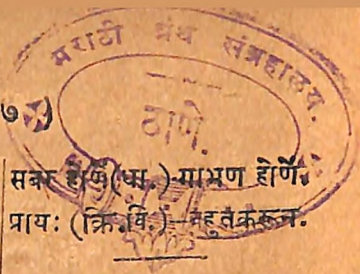 मराठी ग्रंथ संग्रहालय.
ठाणे.
७
सबर होणें(धा.)-गाभण होणें.
प्राय: (क्रि.वि.)-बहुतकरून.